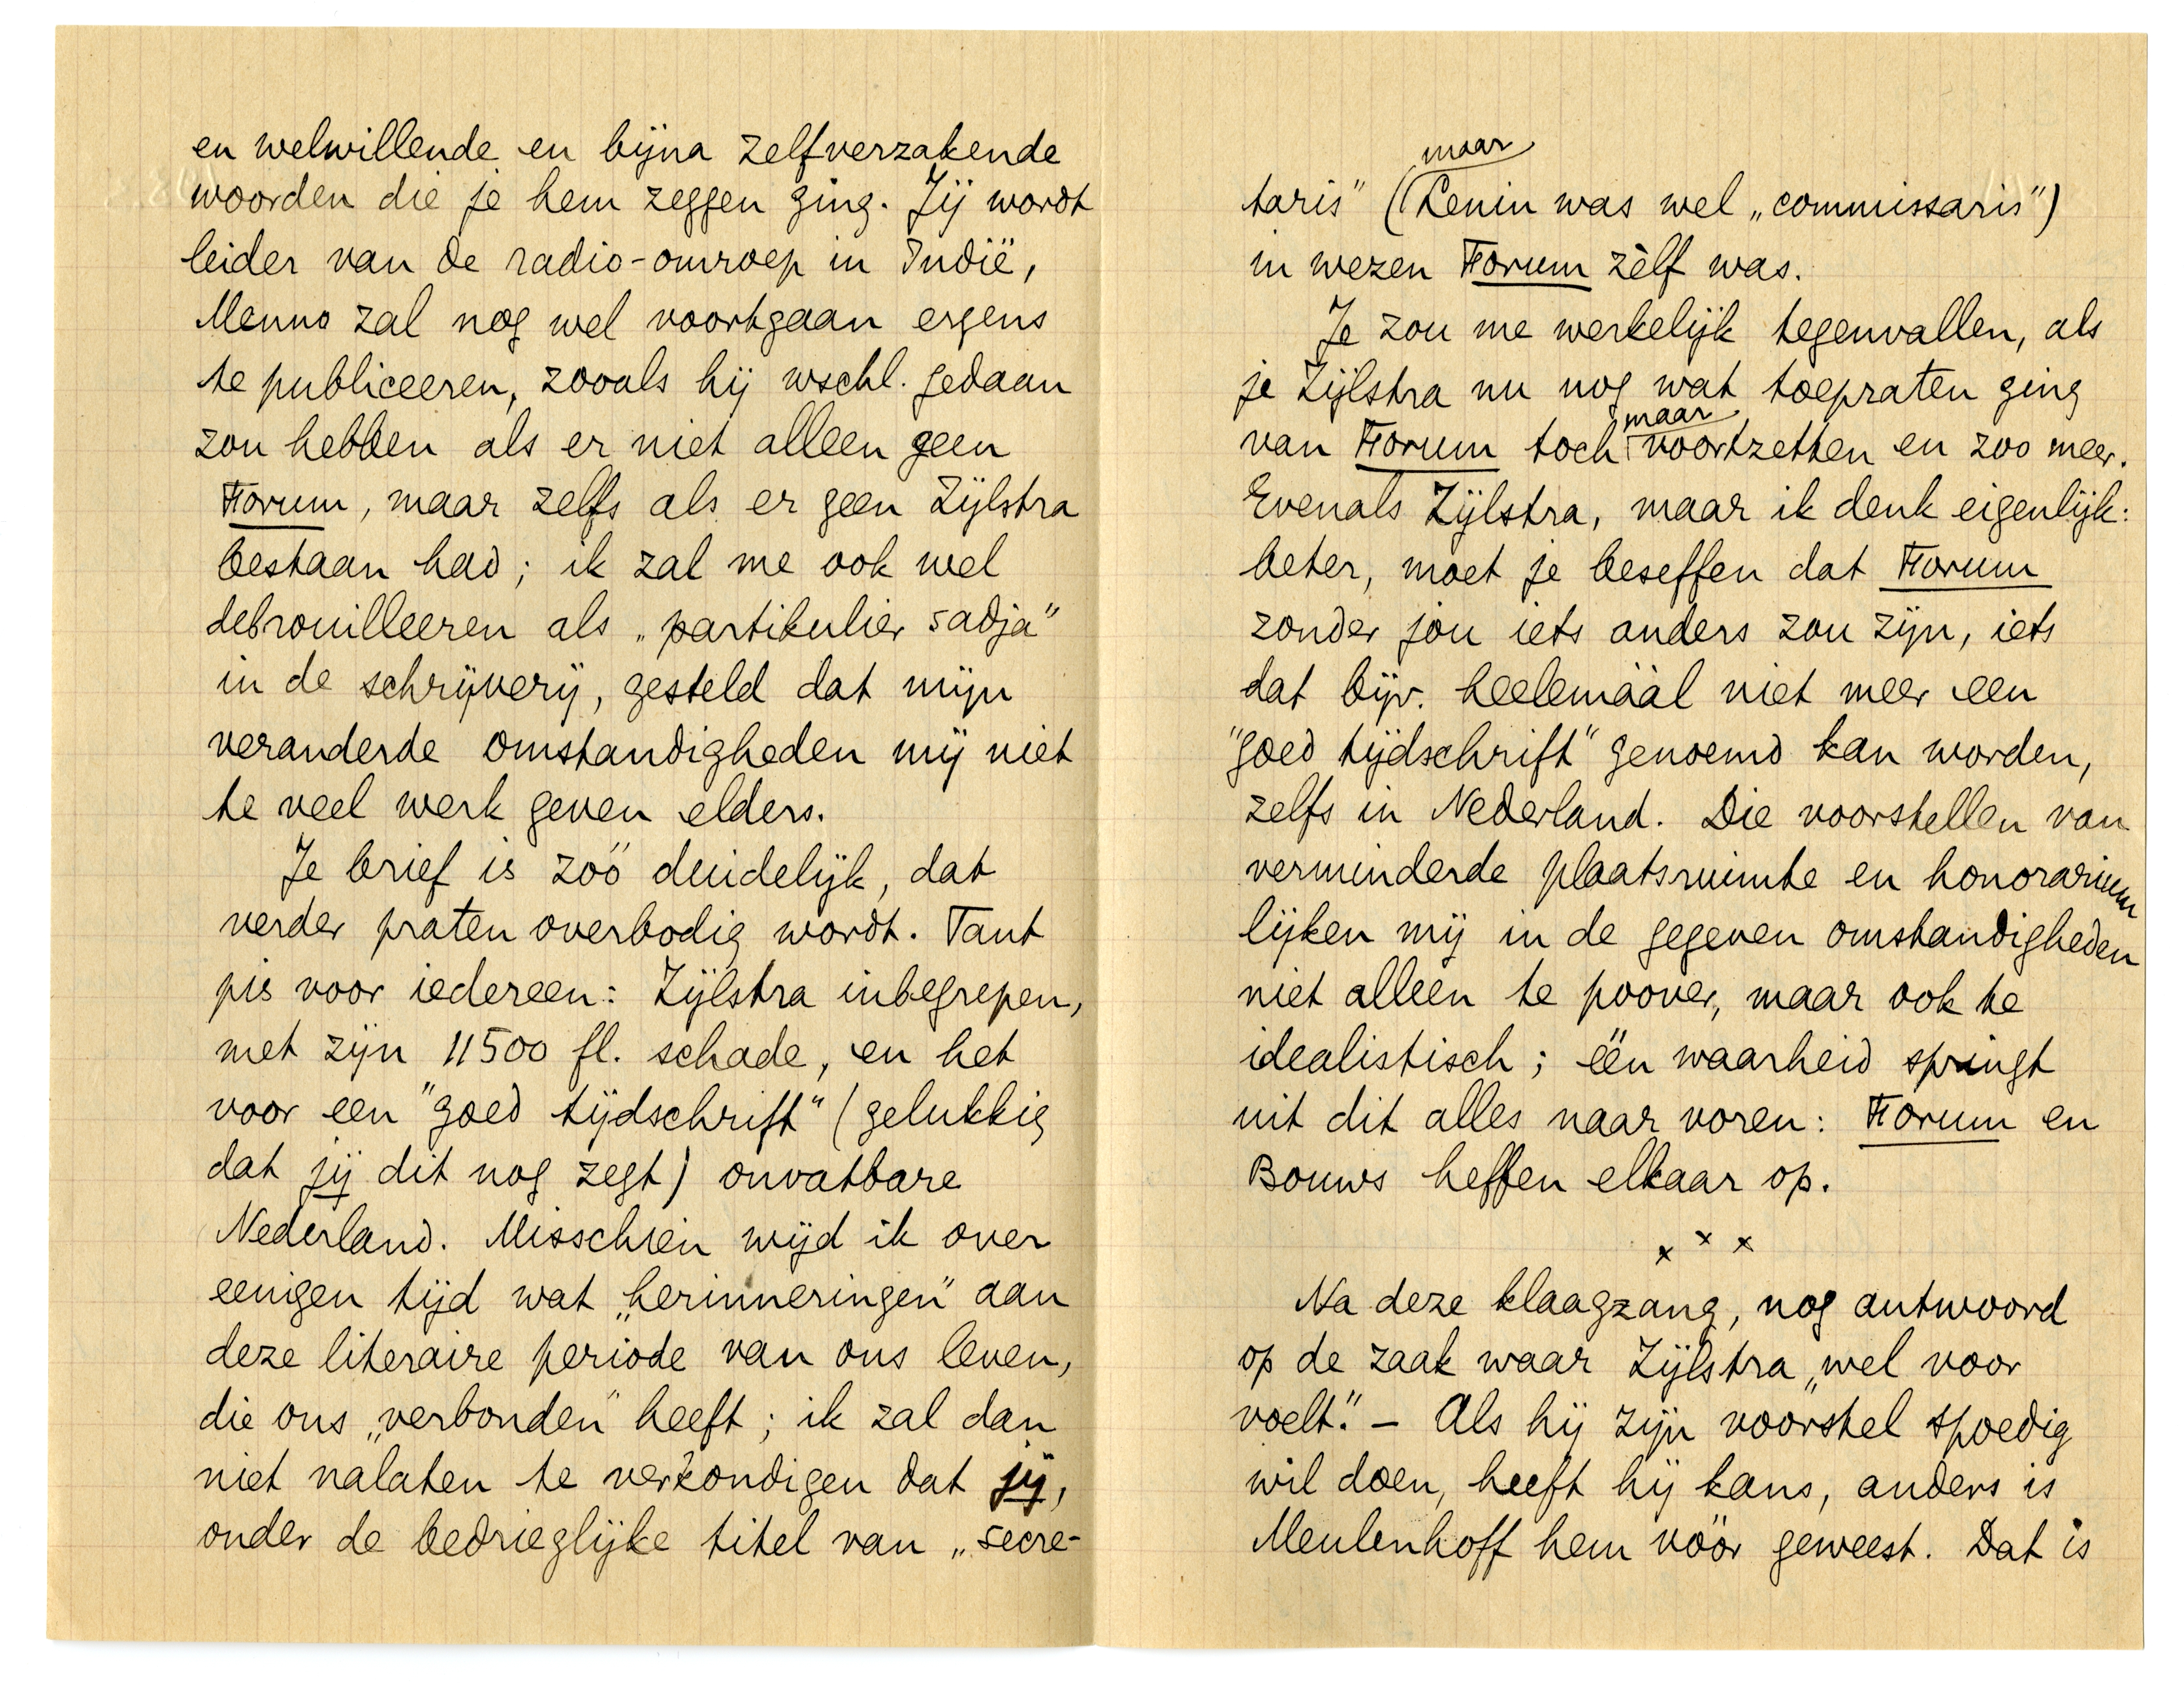 en welwillende en bijna zelfverzakende
woorden die je hem zeggen ging. Jij wordt
leider van de radio-omroep in Indië,
Menno zal nog wel voortgaan ergens
te publiceeren, zooals hij wschl. gedaan
zou hebben als er niet alleen geen
Forum, maar zelfs als er geen Zijlstra
bestaan had; ik zal me ook wel
debrouilleeren als „partikulier sadja”
in de schrijverij, gesteld dat mijn
veranderde omstandigheden mij niet
te veel werk geven elders.
Je brief is zóó duidelijk, dat
verder praten overbodig wordt. Tant
pis voor iedereen: Zijlstra inbegrepen,
met zijn 11500 fl. schade, en het
voor een "goed tijdschrift" (gelukkig
dat jij dit nog zegt) onvatbare
Nederland. Misschien wijd ik over
eenigen tijd wat „herinneringen” aan
deze literaire periode van ons leven,
die ons „verbonden” heeft; ik zal dan
niet nalaten te verkondigen dat jij,
onder de bedrieglijke titel van „secre-
taris” (maar Lenin was wel „commissaris”)
in wezen Forum zèlf was.
Je zou me werkelijk tegenvallen, als
je Zijlstra nu nog wat toepraten ging
van Forum toch maar voortzetten en zoo meer.
Evenals Zijlstra, maar ik denk eigenlijk:
beter, moet je beseffen dat Forum
zonder jóu iets anders zou zijn, iets
dat bijv. heelemáál niet meer een
"goed tijdschrift" genoemd kan worden,
zelfs in Nederland. Die voorstellen van
verminderde plaatsruimte en honorarium
lijken mij in de gegeven omstandigheden
niet alleen te poover, maar ook te
idealistisch; één waarheid springt
uit dit alles naar voren: Forum en
Bouws heffen elkaar op.
x x x
Na deze klaagzang, nog antwoord
op de zaak waar Zijlstra „wel voor
voelt”. – Als hij zijn voorstel spoedig
wil doen, heeft hij kans, anders is
Meulenhoff hem vóór geweest. Dat is